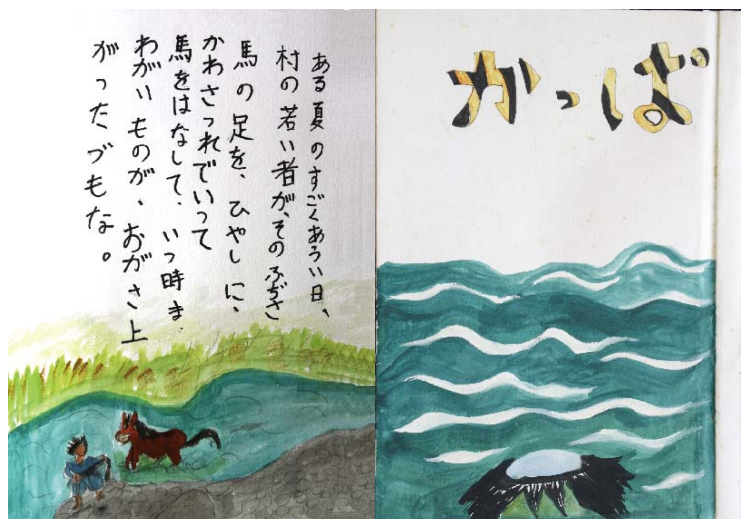 かっぱ
ある夏のすごくあつい日、
村の若い者が、そのふぢさ
馬の足を、ひやしに、
かわさつれでいって
馬をはなして、いっ時ま
わがいものが、おがさ上
がったづもな。